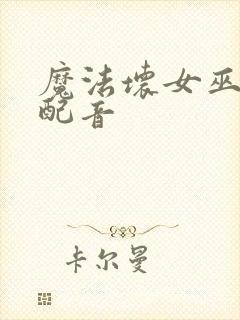 魔法坏女巫
配音
卡尔曼